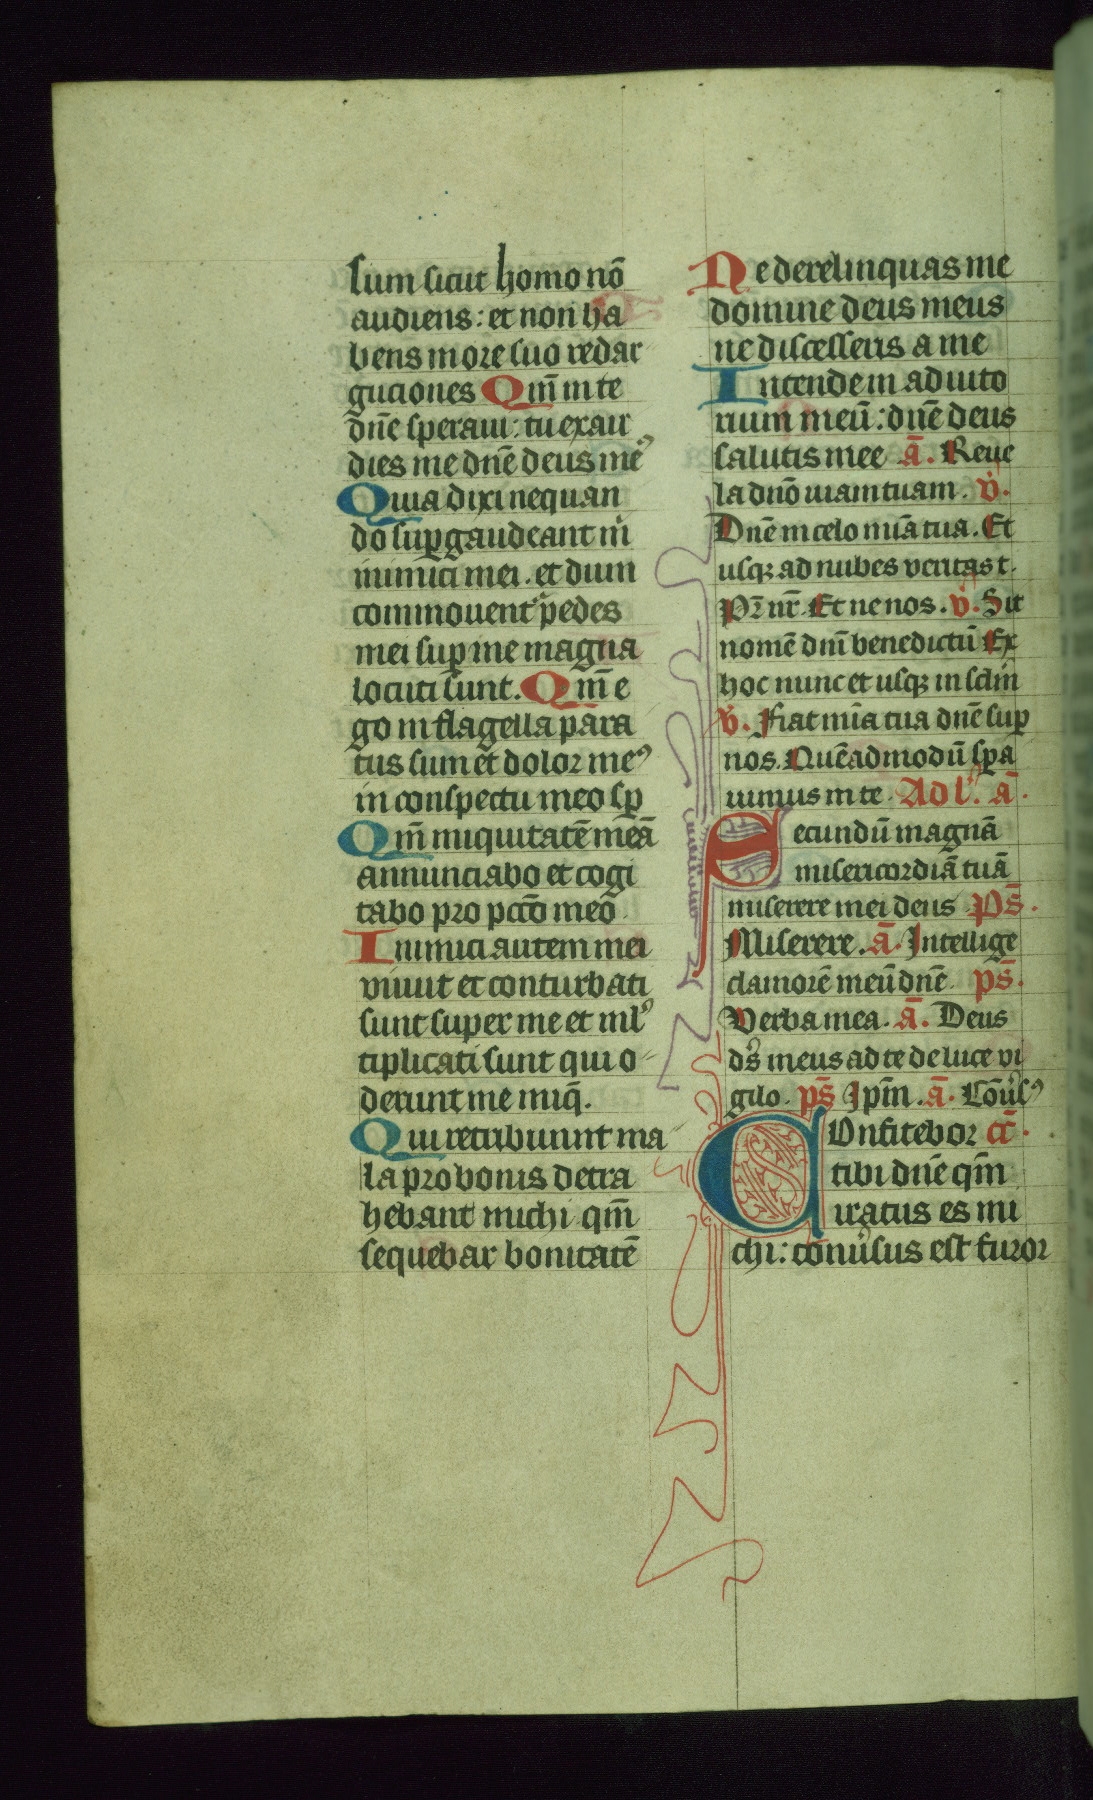 sum sicut homo nō
audiens: et non ha
bens in ore suo redar
guciones Qm̄ in te
dn̄e speraui: tu exau
dies me dn̄e deus meꝰ
Quia dixi nequan
do suꝑgaudeant m̍
inimici mei. et dum
commouent᷑ pedes
mei suꝑ me magna
locuti sunt. Qm̄ e
go in flagella para
tus sum et dolor meꝰ
in conspectu meo sꝑ
Qm̄ iniquitatē meā
annunciabo et cogi
tabo pro pcc̄o meo
Inimici autem mei
viuūt et conturbati
sunt super me et mlꝰ
tiplicati sunt qui o
derunt me iniq̄.
Qui retribuunt ma
la pro bonis detra
hebant michi qm̄
sequebar bonitatē
Ne derelinquas me
domine deus meus
ne discesseris a me
Intende in adiuto
rium meū: dn̄e deus
salutis mee ā. Reue
la dn̄o uiam tuam. v̍.
Dn̄e in celo mīa tua. Et
usqꝫ ad nubes veritas t.
Pr̄ nr̄. Et ne nos. v̍. Sit
nomē dn̄i benedictū Ex
hoc nunc et usqꝫ in sclm̄
v̍. Fiat mīa tua dn̄e suꝑ
nos. Quēadmodū spa
uimus in te. Ad l'. ā.
Secundū magnā
misericordiā tuā
miserere mei deus Ps̄.
Miserere. ā. Intellige
clamorē meū dn̄e. ps̄.
Verba mea. ā. Deus
ds̄ meus ad te de luce vi
gilo. ps̄ Ipm̄. ā. Cōuersꝰ
Confitebor cc̄.
tibi dn̄e qm̄
iratus es mi
chi: cōnuersus est furor